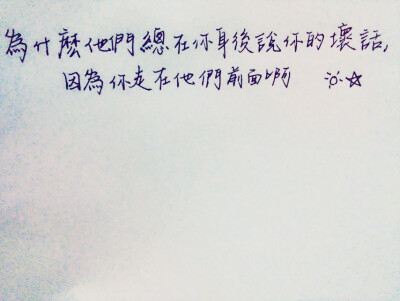 為什麼他們總在你身後說你的壞話,
因為你走在他們前面啊 ☼☆